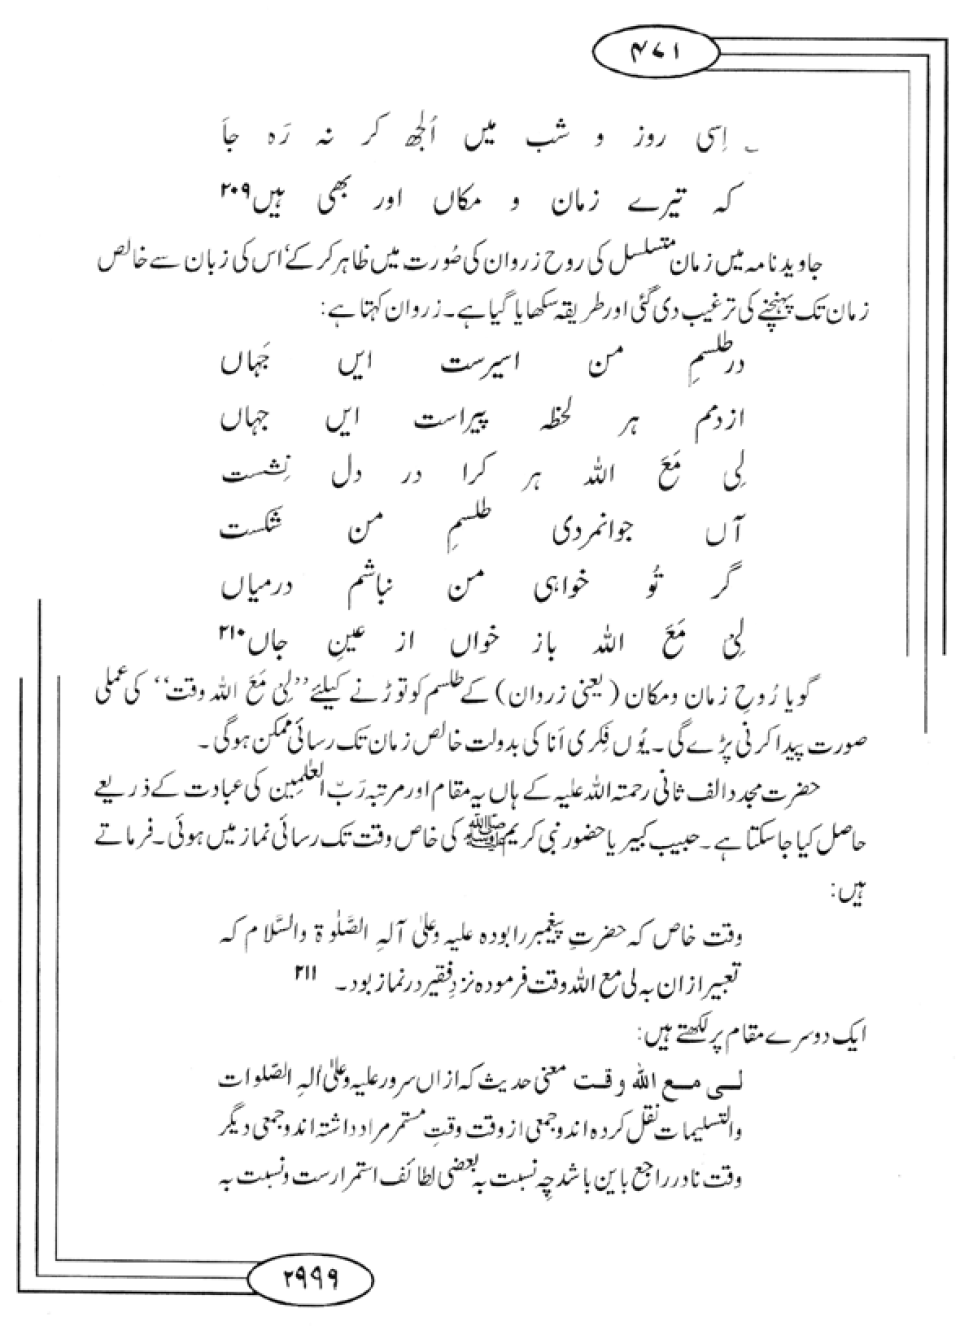 ۴۷۱
؎ اِسی روز و شب میں اُلجھ کر نہ رَہ جاَ
کہ تیرے زمان و مکاں اور بھی ہیں۲۰۹
جاوید نامہ میں زمان متسلسل کی روح زروان کی صُورت میں ظاہر کر کے‘ اس کی زبان سے خالص
زمان تک پہنچنے کی ترغیب دی گئی اور طریقہ سکھایا گیا ہے۔ زروان کہتا ہے:
در طلسمِ من اسیرست ایں جَہاں
از دمم ہر لحظہ پیراست ایں جہاں
لِی مَعَ اللہ ہر کرا در دل نِشست
آں جوانمردی طلسمِ من شکست
گر تُو خواہی من نباشم درمیاں
لِیْ مَعَ اللہ باز خواں از عینِ جاں۲۱۰
گویا رُوحِ زمان و مکان (یعنی زردان) کے طلسم کو توڑنے کیلئے ’’لِیْ مَعَ اللہ وقت‘‘ کی عملی
صورت پیدا کرنی پڑے گی۔ یُوں فِکری اَنا کی بدولت خالص زمان تک رسائی ممکن ہو گی۔
حضرت مجدد الف ثانی رحمتہ اللہ علیہ کے ہاں یہ مقام اور مرتبہ رَبّ العٰلمِین کی عبادت کے ذریعے
حاصل کیا جا سکتا ہے۔ حبیب کبیر یا حضور نبی کریم ﷺ کی خاص وقت تک رسائی نماز میں ہوئی۔ فرماتے
ہیں:
وقت خاص کہ حضرتِ پیغمبر را بودہ علیہ وعلیٰ آلہِ الصَّلٰوۃ والسَّلام کہ
تعبیر ازان بہ لی مع اللہ وقت فرمودہ نزدِ فقیر در نماز بود۔ ۲۱۱
ایک دوسرے مقام پر لکھتے ہیں:
لـی مـع اللہ وقـت معنی حدیث کہ ازاں سرور علیہ وعلیٰ اٰلہِ الصّلوات
والتسلیمات نقل کردہ اند و جمعی از وقت وقتِ مستمر مراد داشتہ اند و جمعی دیگر
وقت نادر راجع باین باشد چہ نسبت بہ بعضی لطائف استمرارست و نسبت بہ
۲۹۹۹